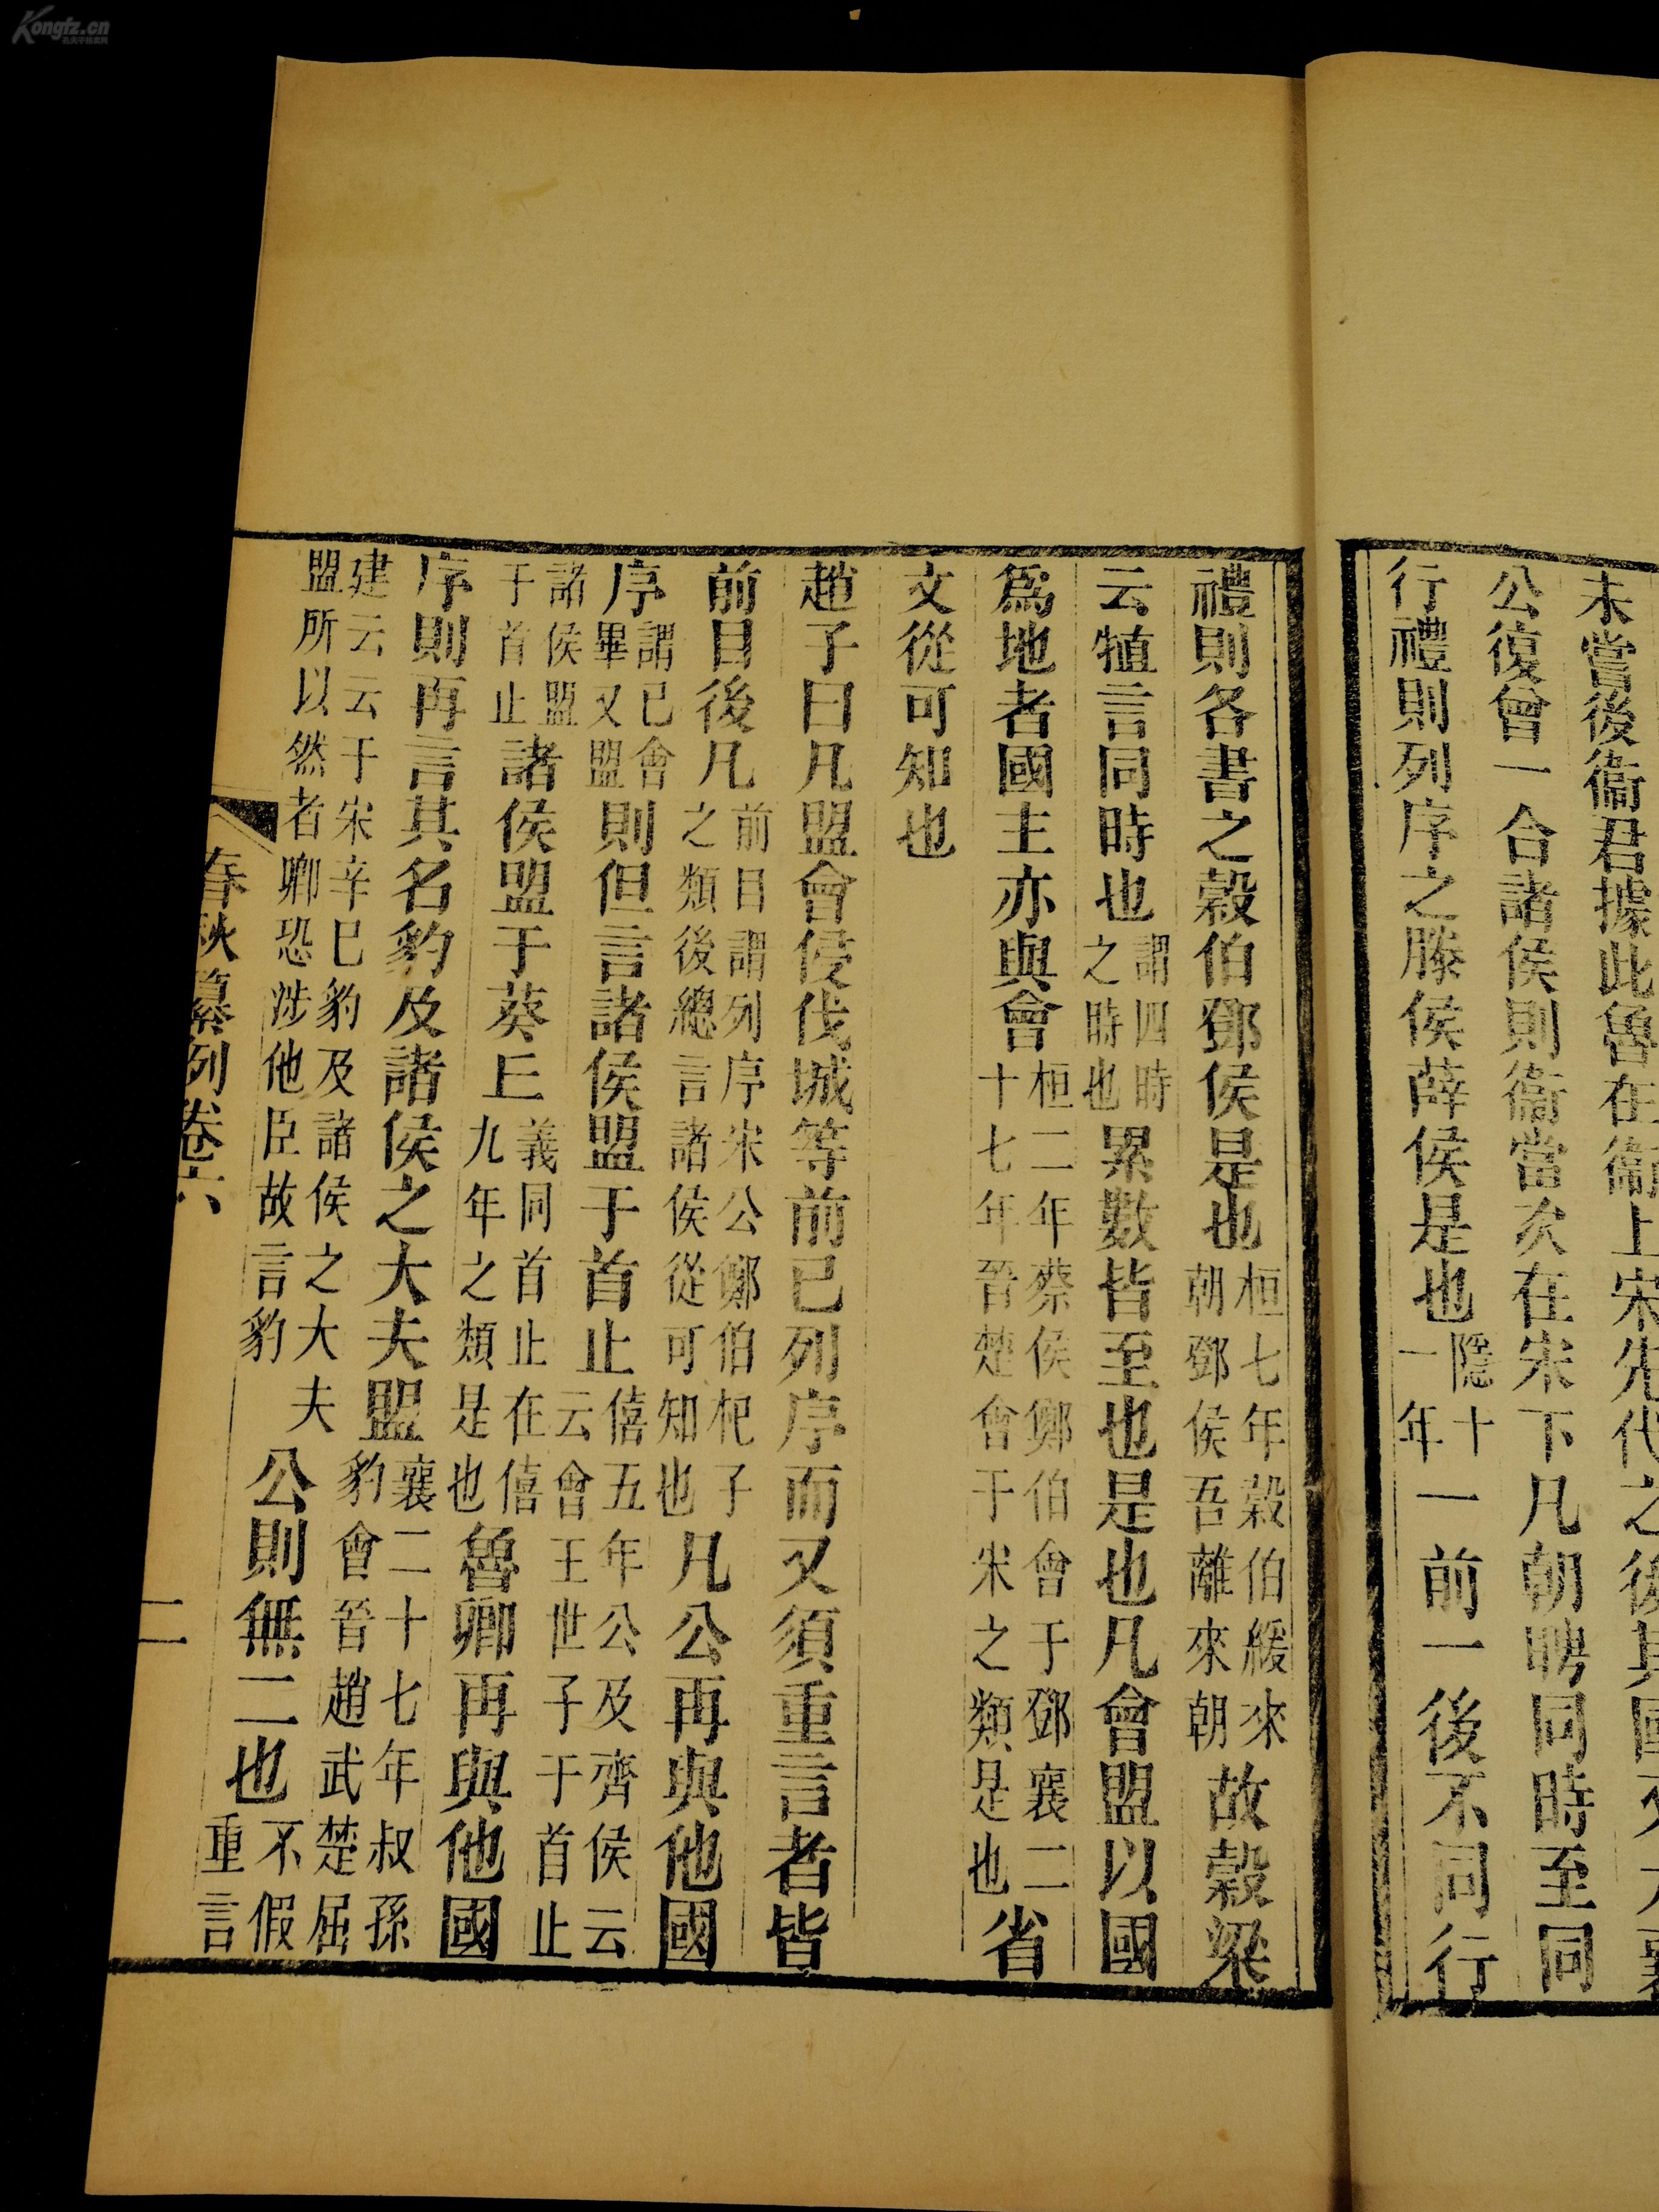 未嘗後衞君據此魯在衞上宋先代之後其國
公復會一合諸侯則衞當次在宋下凡朝聘同時至同
行禮則列序之滕侯薛侯是也隱十一年一前一後不同行
禮則各書之穀伯鄧侯是也桓七年穀伯綏來朝鄧侯吾離來朝故穀梁
云犆言同時也謂四時之時也累數皆至也是也凡會盟以國
爲地者國主亦與會桓二年蔡侯鄭伯會于鄧襄二十七年晉楚會于宋之類是也省
文從可知也
趙子曰凡盟會侵伐城等前已列序而又須重言者皆
前目後凡前目謂列序宋公鄭伯杞子之類後總言諸侯從可知也凡公再與他國
序謂已會畢又盟則但言諸侯盟于首止僖五年公及齊侯云云會王世子于首止
諸侯盟于首止諸侯盟于葵丘義同首止在僖九年之類是也魯卿再與他國
序則再言其名豹及諸侯之大夫盟襄二十七年叔孫豹會晉趙武楚屈
建云云于宋辛巳豹及諸侯之大夫盟所以然者卿恐涉他臣故言豹公則無二也不假重言
春秋纂例卷六
二
Kongfz.cn